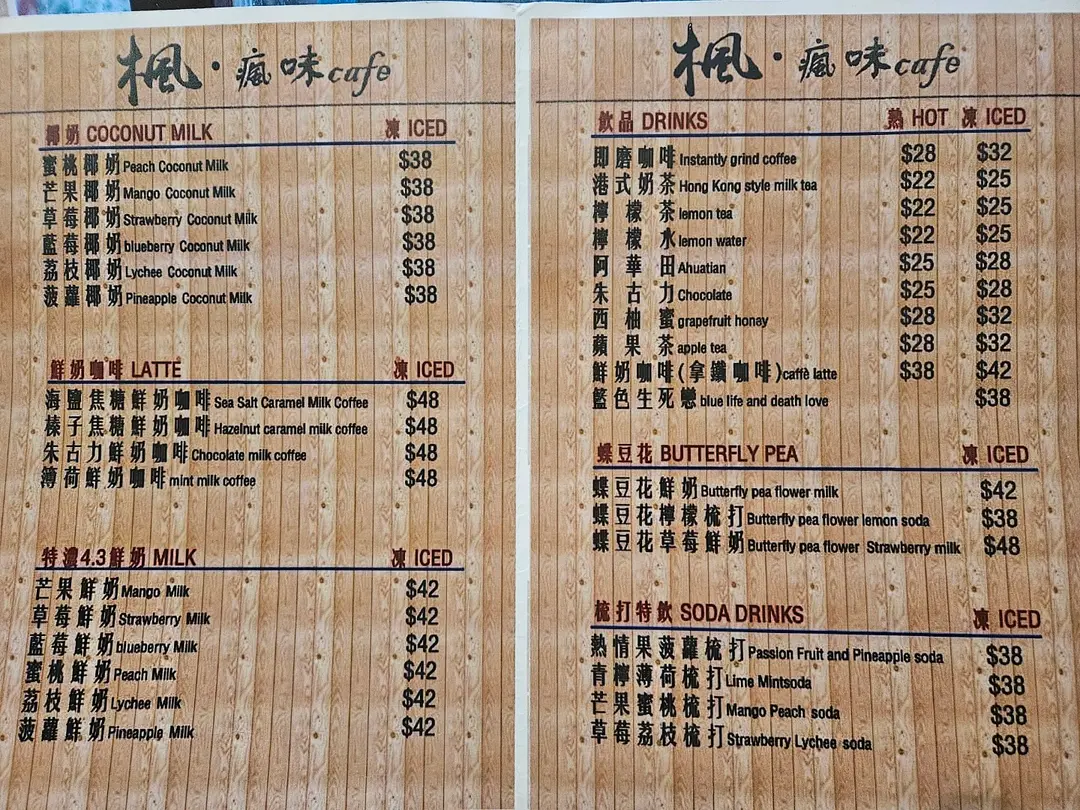 楓·瘋味cafe
椰奶 COCONUT MILK 凍 ICED
蜜桃椰奶Peach Coconut Milk $38
芒果椰奶Mango Coconut Milk $38
草莓椰奶Strawberry Coconut Milk $38
藍莓椰奶blueberry Coconut Milk $38
荔枝椰奶Lychee Coconut Milk $38
菠蘿椰奶Pineapple Coconut Milk $38
鮮奶咖啡 LATTE 凍 ICED
海鹽焦糖鮮奶咖啡Sea Salt Caramel Milk Coffee $48
榛子焦糖鮮奶咖啡Hazelnut caramel milk coffee $48
朱古力鮮奶咖啡Chocolate milk coffee $48
簿荷鮮奶咖啡mint milk coffee $48
特濃4.3鮮奶 MILK 凍 ICED
芒果鮮奶Mango Milk $42
草莓鮮奶Strawberry Milk $42
藍莓鮮奶blueberry Milk $42
蜜桃鮮奶Peach Milk $42
荔枝鮮奶Lychee Milk $42
菠蘿鮮奶Pineapple Milk $42
楓·瘋味cafe
飲品 DRINKS 熱 HOT 凍 ICED
即磨咖啡Instantly grind coffee $28 $32
港式奶茶Hong Kong style milk tea $22 $25
檸檬茶lemon tea $22 $25
檸檬水lemon water $22 $25
阿華田Ahuatian $25 $28
朱古力Chocolate $25 $28
西柚蜜grapefruit honay $28 $32
蘋果茶apple tea $28 $32
鮮奶咖啡(拿鐵咖啡)caffè latte $38 $42
籃色生死戀blue life and death love $38
蝶豆花 BUTTERFLY PEA 凍 ICED
蝶豆花鮮奶Butterfly pea flower milk $42
蝶豆花檸檬梳打Butterfly pea flower lemon soda $38
蝶豆花草莓鮮奶Butterfly pea flower Strawberry milk $48
梳打特飲 SODA DRINKS 凍 ICED
熱情果菠蘿梳打Passion Fruit and Pineapple soda $38
青檸薄荷梳打Lime Mintsoda $38
芒果蜜桃梳打Mango Peach soda $38
草莓荔枝梳打Strawberry Lychee soda $38